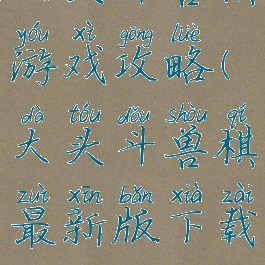 yóu xì gōng lüè
游戏攻略(
dà tóu dǒu shòu qí
大头斗兽棋
zuì xīn bǎn xià zài
最新版下载